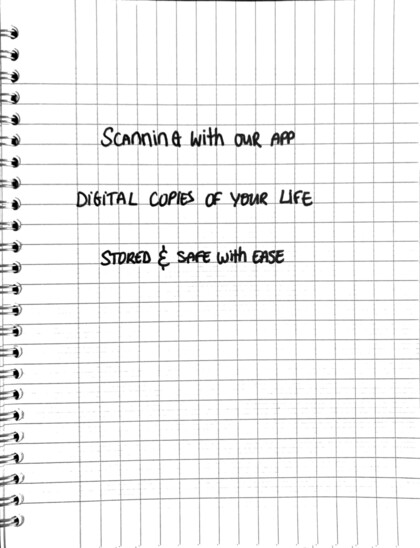 Scanning with our app
Digital copies of your life
Stored & safe with ease